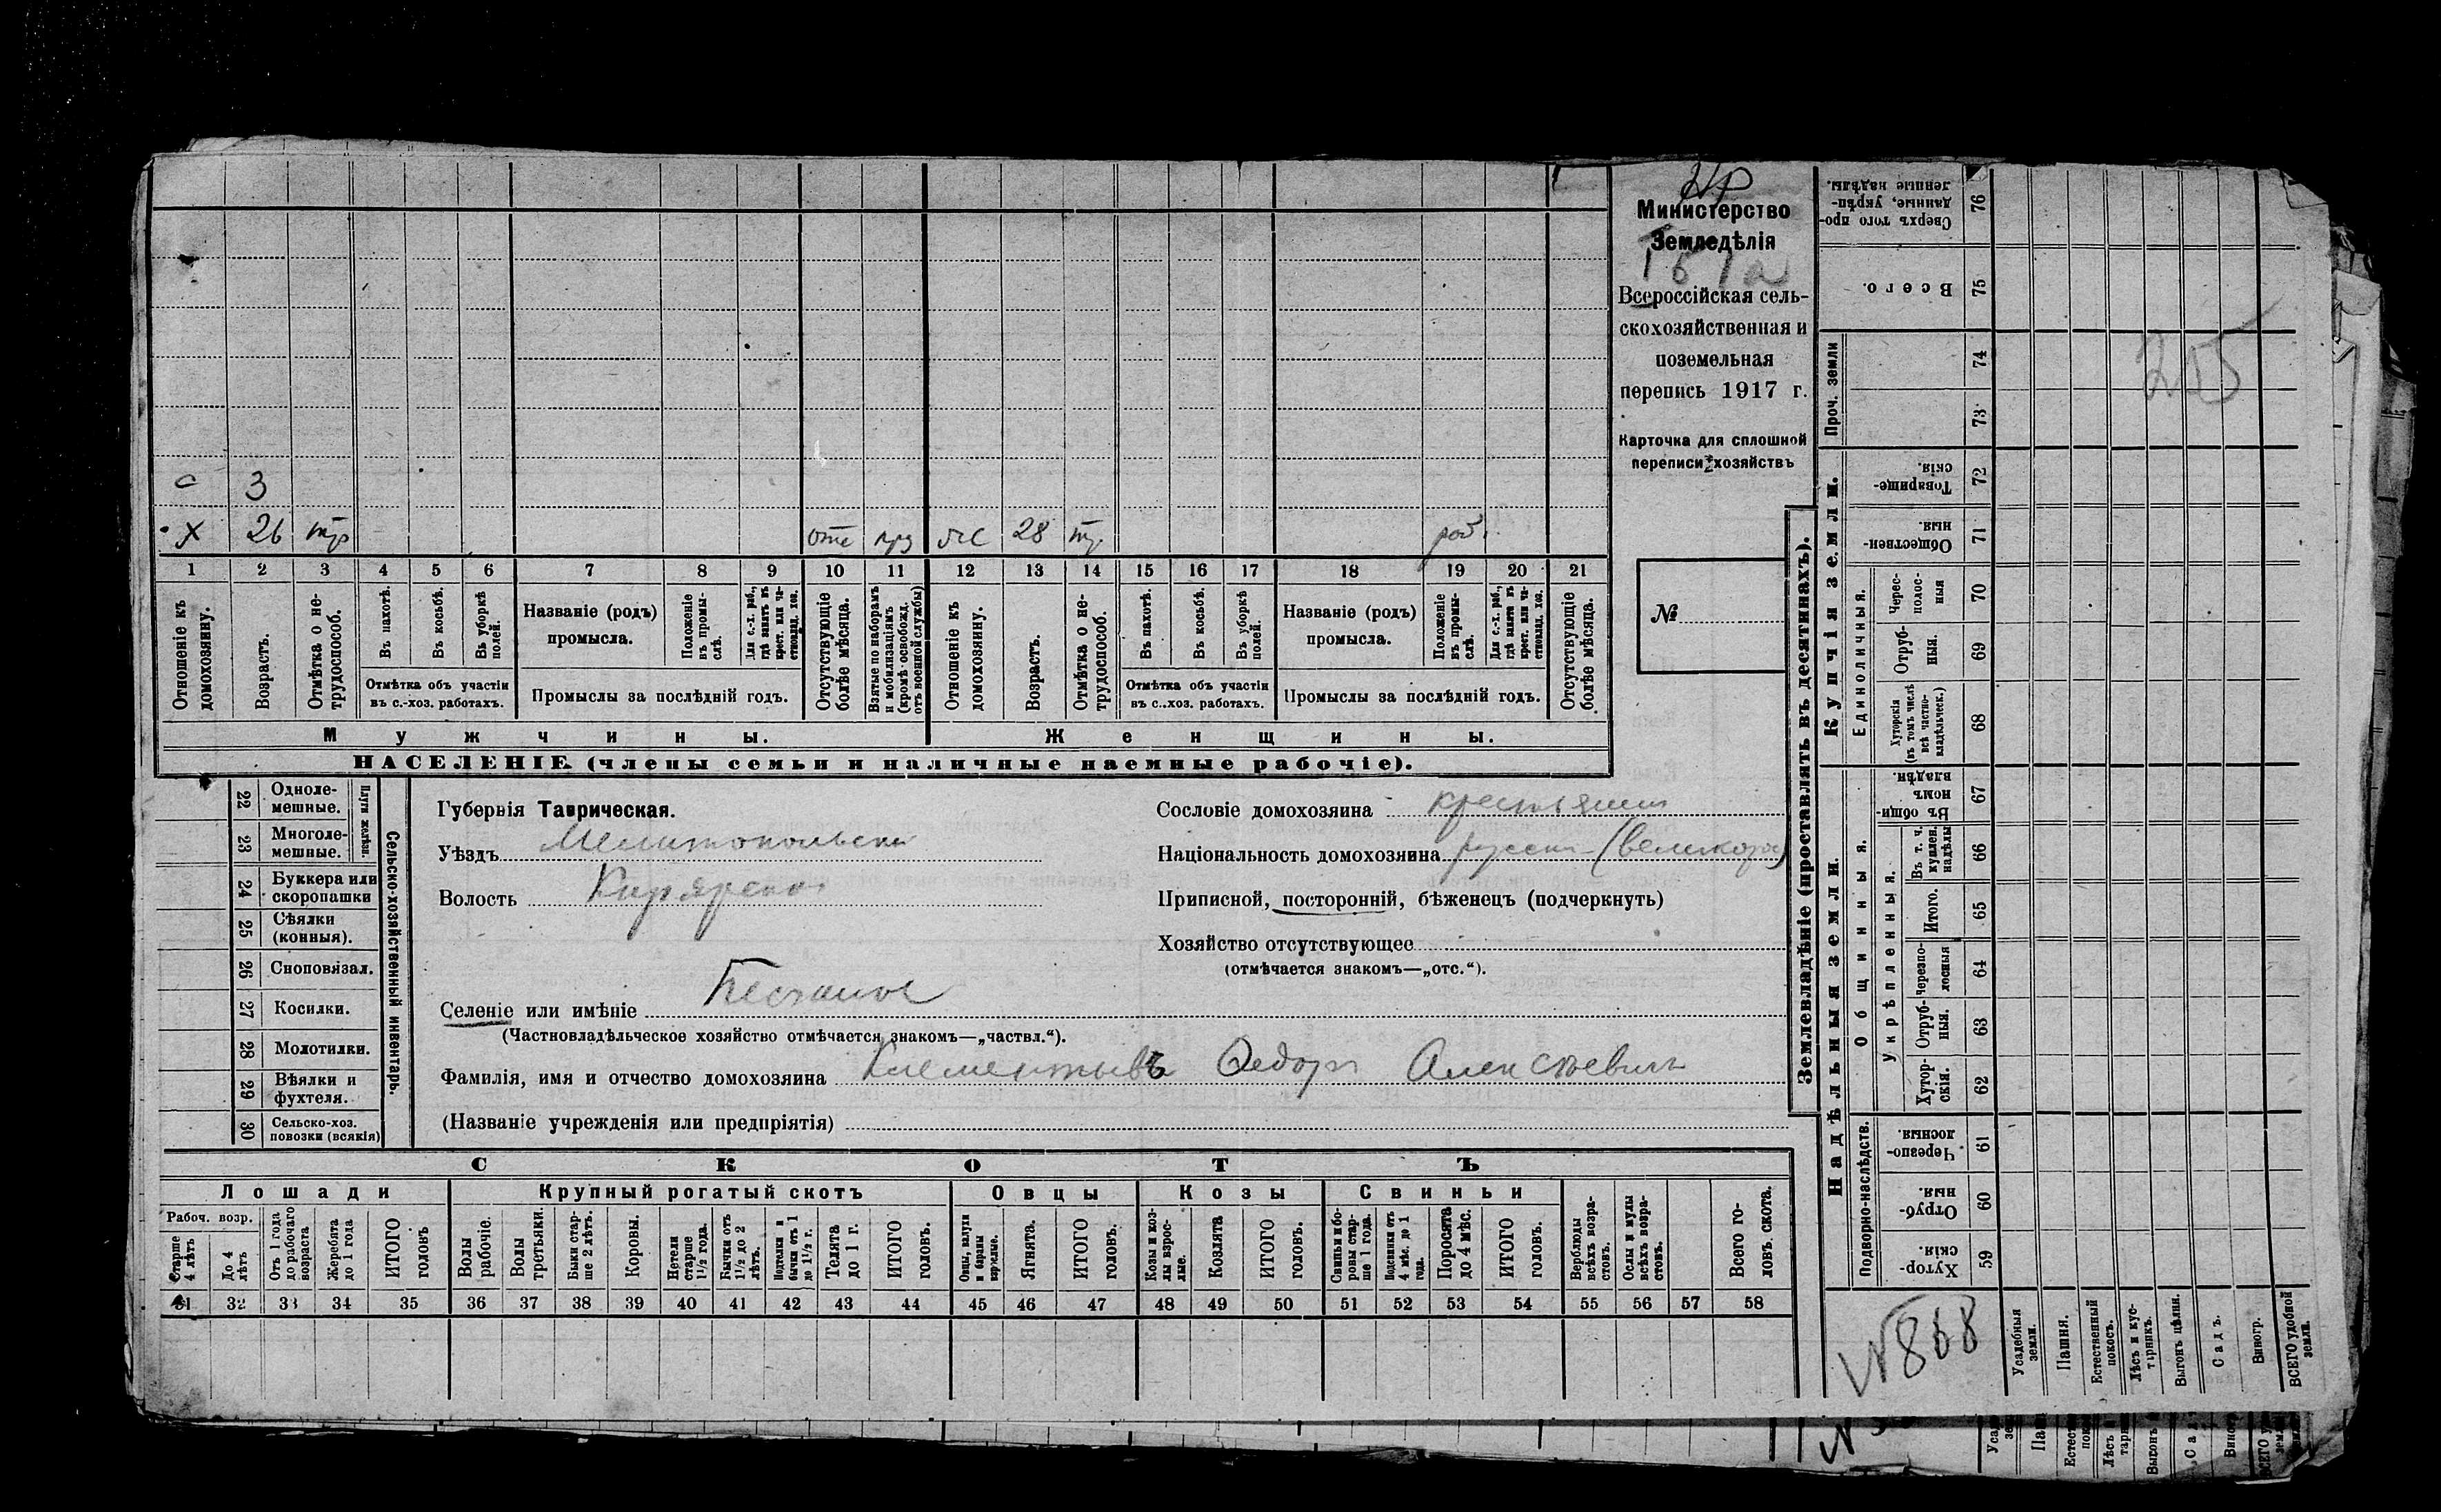 с 3
х 26 тр отс прз жс 28 тр. раб.
1 2 3 4 5 6 7 8 9 10 11 12 13 14 15 16 17 18 19 20 21
Отношеніе къ домохозяину.
Возрастъ.
Отмѣтка о не-
трудоспособ.
Въ пахотѣ.
Въ косьбѣ.
Въ уборкѣ
полей.
Отмѣтка объ участіи
въ с.-хоз. работахъ.
Названіе (родъ)
промысла.
Положеніе
въ промы-
слѣ.
Для с.-х. раб.,
гдѣ занятъ въ
крест. или ча-
стновлад. хоз.
Промыслы за послѣдній годъ.
Отсутствующіе
болѣе мѣсяца.
Взятые по наборамъ
и мобилизаціямъ
(кромѣ освобожд.
отъ военной службы)
Отношеніе къ
домохозяину.
Возрастъ.
Отмѣтка о не-
трудоспособ.
Въ пахотѣ.
Въ косьбѣ.
Въ уборкѣ
полей.
Отмѣтка объ участіи
въ с.-хоз. работахъ.
Названіе (родъ)
промысла.
Положеніе
въ промы-
слѣ.
Для с.-х. раб.,
гдѣ занятъ въ
крест. или ча-
стновлад. хоз.
Промыслы за послѣдній годъ.
Отсутствующіе
болѣе мѣсяца.
Мужчины. Женщины.
НАСЕЛЕНІЕ (члены семьи и наличные наемные рабочіе).
Министерство
Земледѣлія
Всероссійская сель-
скохозяйственная и
поземельная
перепись 1917 г.
Карточка для сплошной
переписи хозяйствъ
№
22 Однолe-
мешные.
23 Многоле-
мешные.
Плуги желѣзн.
24 Буккера или
скоропашки
25 Сѣялки
(конныя).
26 Сноповязал.
27 Косилки.
28 Молотилки.
29 Вѣялки и
фухтеля.
30 Сельско-хоз.
повозки (всякія)
Сельско-хозяйственный инвентарь.
Губернія Таврическая.
Уѣздъ Мелитопольск
Волость
Селеніе или имѣніе Песчаное
(Частновладѣльческое хозяйство отмѣчается знакомъ—„частвл.“).
Фамилія, имя и отчество домохозяина Клементьевъ Федоръ Алексѣевичъ
(Названіе учрежденія или предпріятія)
Сословіе домохозяина крестьянин
Національность домохозяина русск (великорос)
Приписной, посторонній, бѣженецъ (подчеркнуть)
Хозяйство отсутствующее
(отмѣчается знакомъ—„отс.“).
СКОТЪ
Лошади Крупный рогатый скотъ Овцы Козы Свиньи
Рабоч. возр.
Старше
4 лѣтъ
До 4
лѣтъ
Отъ 1 года
до рабочаго
возраста
Жеребята
до 1 года
ИТОГО
головъ
Волы
рабочіе.
Волы
третьяки.
Быки стар-
ше 2 лѣтъ.
Коровы.
Нетели
старше
1½ года.
Бычки отъ
1½ до 2
лѣтъ.
Подтелки и
бычки отъ 1
до 1½ г.
Телята
до 1 г.
ИТОГО
головъ.
Овцы, валухи
и бараны
взрослые.
Ягнята.
ИТОГО
головъ.
Козы и коз-
лы взрос-
лые.
Козлята
ИТОГО
головъ.
Свиньи и бо-
ровы стар-
ше 1 года.
Подсвинки отъ
4 мѣс. до 1
года.
Поросята
до 4 мѣс.
ИТОГО
головъ.
Верблюды
всѣхъ возра-
стовъ.
Ослы и мулы
всѣхъ возра-
стовъ.
Всего го-
ловъ скота.
31 32 33 34 35 36 37 38 39 40 41 42 43 44 45 46 47 48 49 50 51 52 53 54 55 56 57 58
Землевладѣніе (проставлять въ десятинахъ).
Купчія земли.
Сверхъ того про-
данные, укрѣп-
ленные надѣлы.
76
Всего.
75
Проч. земли
74
73
Товарище-
скія.
72
Обществен-
ныя.
71
Единоличныя.
Черес-
полос-
ныя
70
Отруб-
ныя.
69
Хуторскія
(въ томъ числѣ
всѣ частно-
владѣльческ.)
68
Надѣльныя земли.
Общинныя.
Въ общи-
номъ
владѣн.
67
Укрѣпленныя.
Въ т. ч.
куплен.
надѣлы
66
Итого.
65
Черезпо-
лосныя
64
Отруб-
ныя.
63
Хутор-
скія.
62
Подворно-наслѣдств.
Черезпо-
лосныя.
61
Отруб-
ныя.
60
Хутор-
скія.
59
215
№868
Усадебныя
земли.
Пашня.
Естественный
покосъ.
Лѣсъ и кус-
тарникъ.
Выгонъ цѣлин.
Садъ.
Виногр.
ВСЕГО удобной
земли.